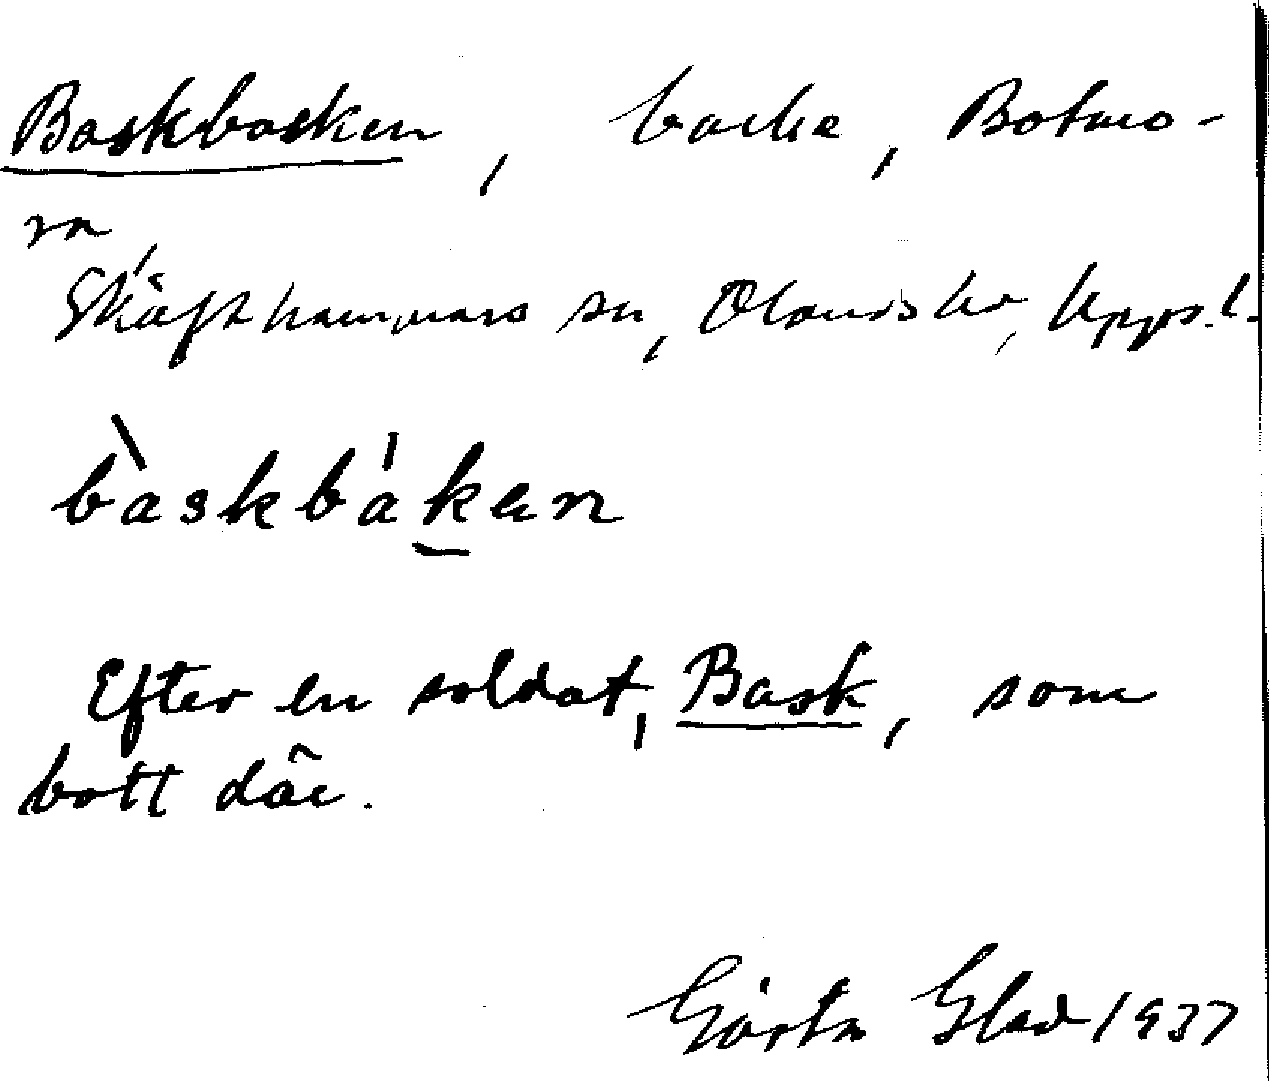 Baskbacken, backe, Botmo-
ra,
Skäfthammars sn, Olands hd, Uppsl.
bàskbákan
Efter en soldat, Bask, som
bott där.
Gösta Glad 1937